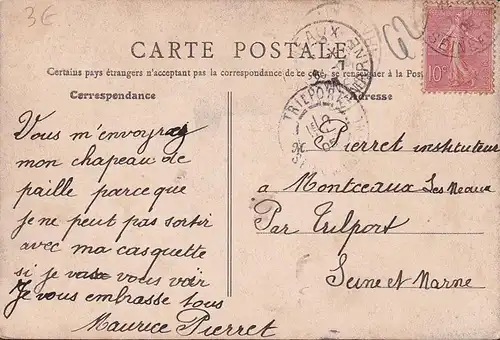 3€
CARTE POSTALE
Certains pays étrangers n'acceptent pas la correspondance de ce côté, se renseigner à la Poste
Correspondance
Vous m'envoyrez
mon chapeau de
paille parce que
je ne peut pas sortir
avec ma casquette
si je vous voir
Je vous embrasse tous
Maurice Pierret
Adresse
Pierret instituteur
a Montceaux Les Meaux
Par Trilport
Seine et Marne
10c
TRILPORT